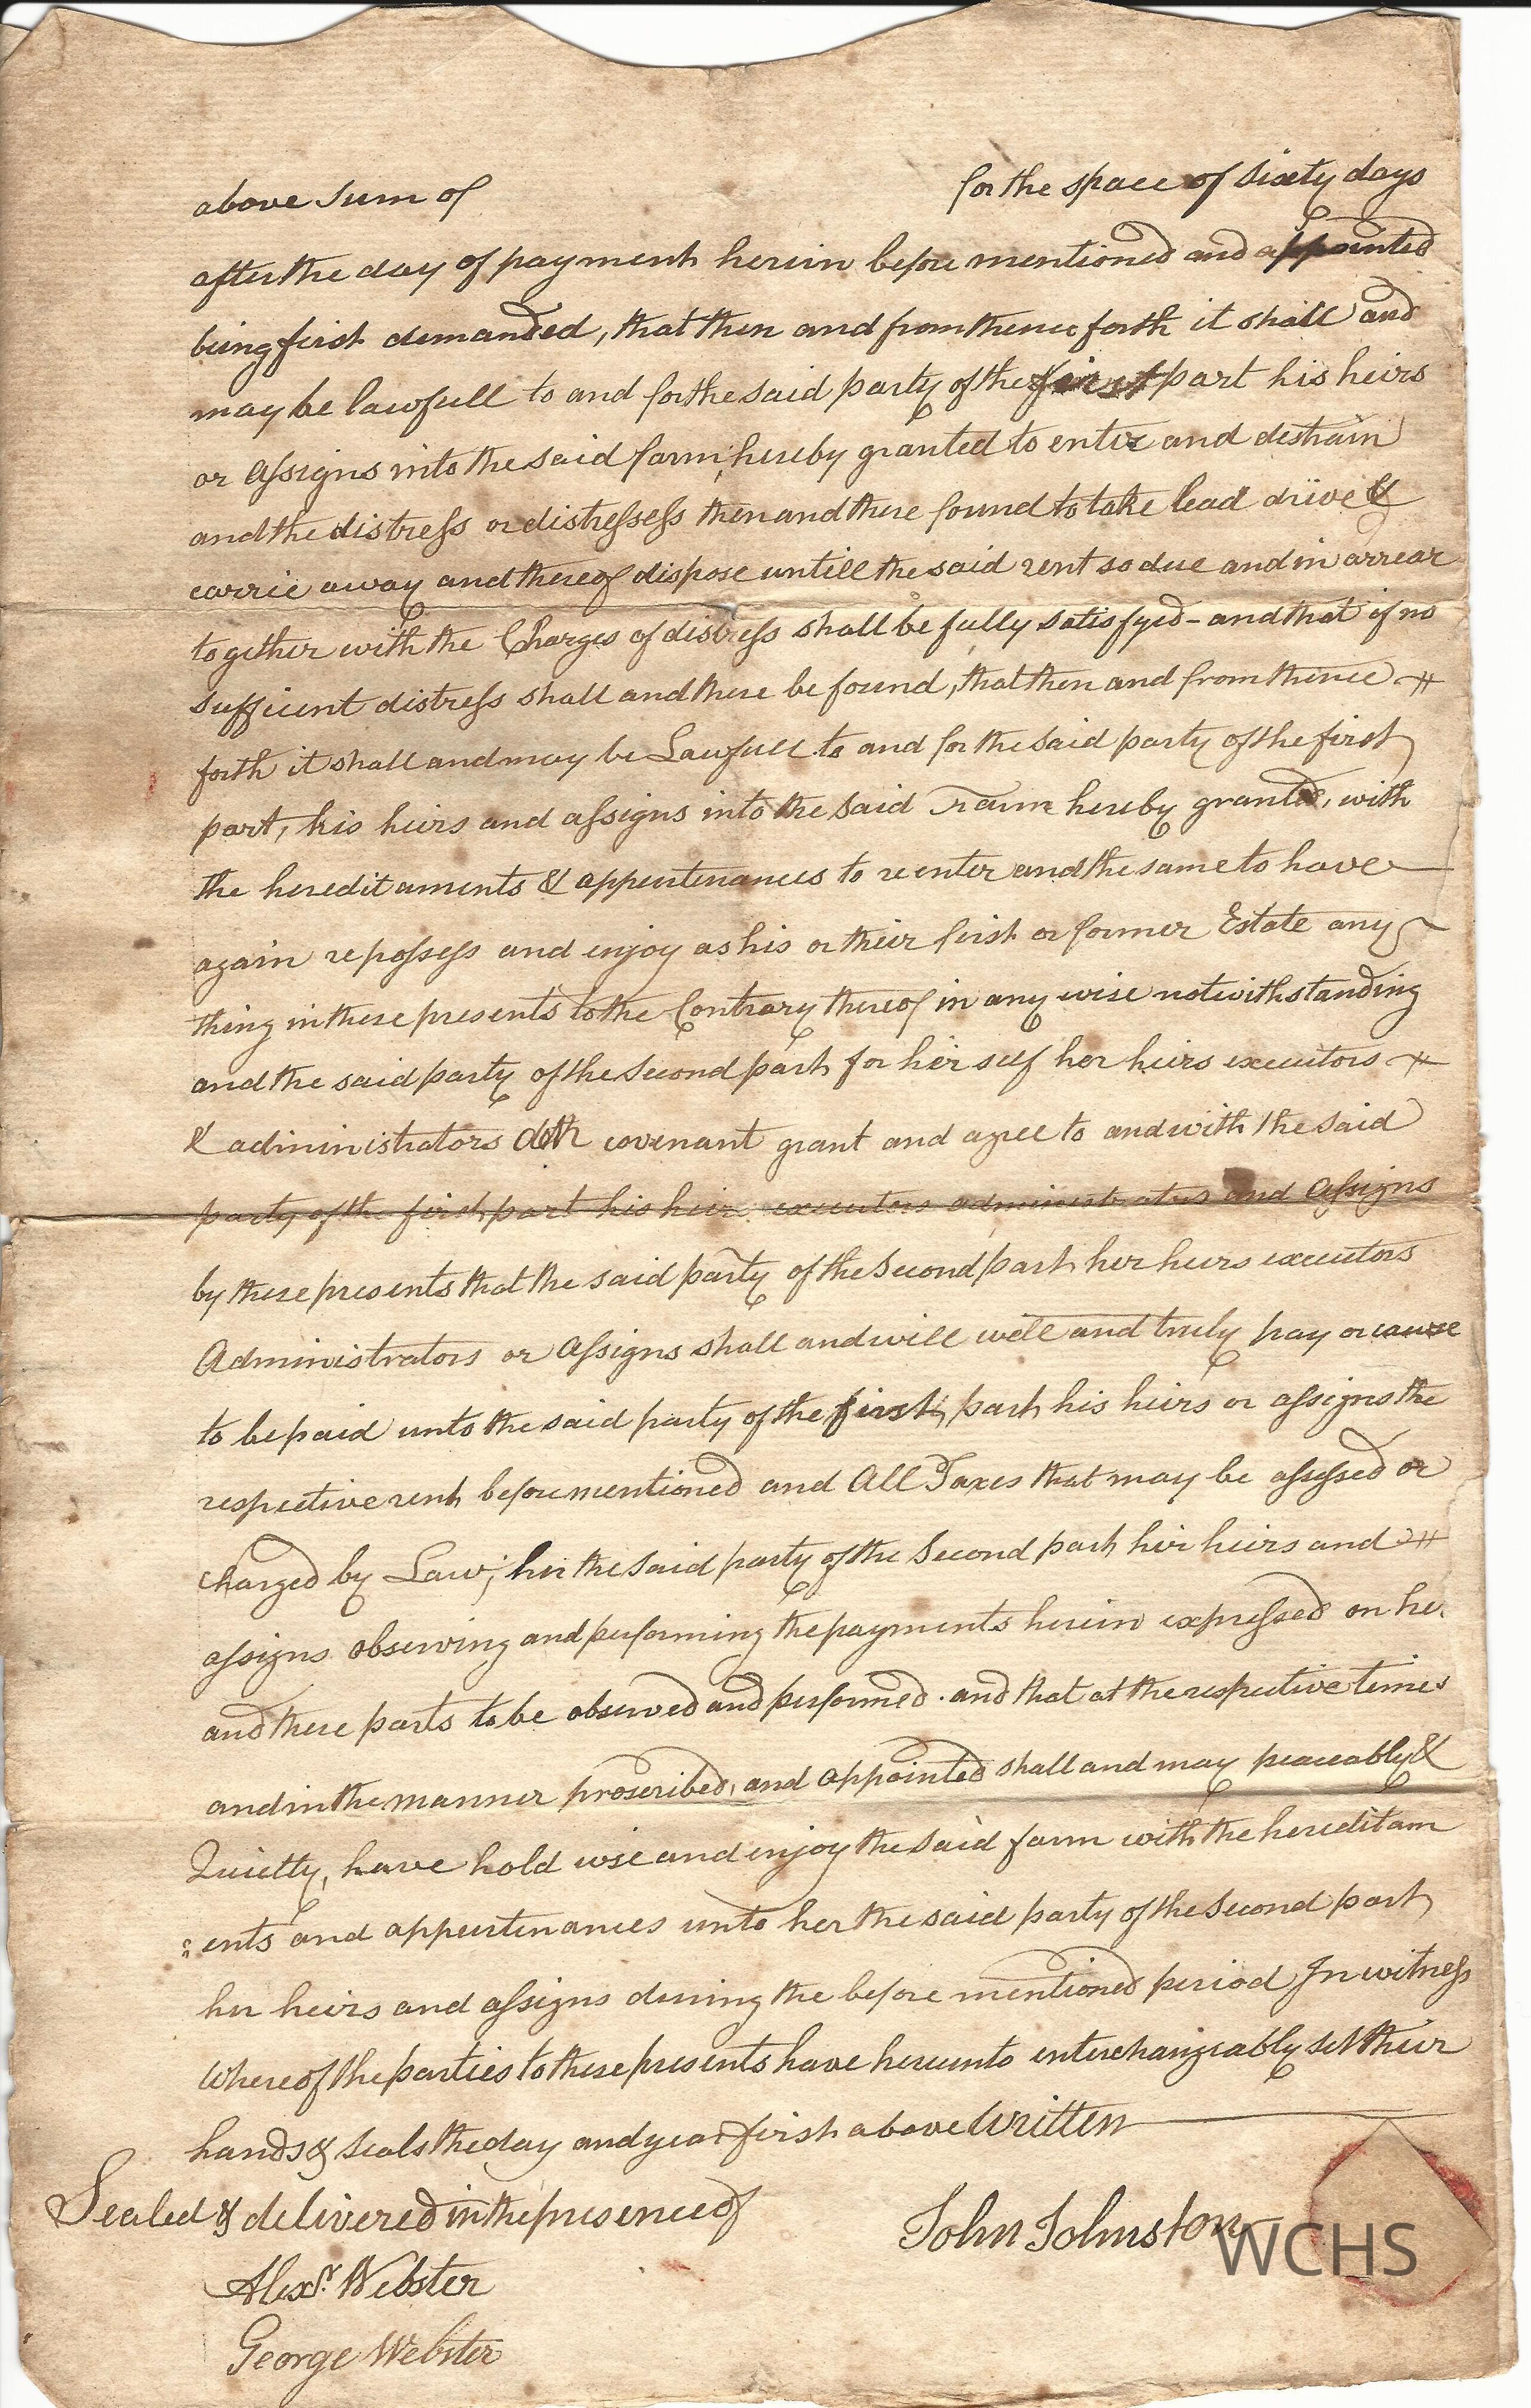 above Sum of for the space of sixty days
after the day of payment herein before mentioned and appointed
being first demanded, that then and from thence forth it shall and
may be lawfull to and for the said party of the first part his heirs
or assigns into the said farm hereby granted to enter and destrain
and the distress or distressess then and there found to take lead drive &
carrie away and thereof dispose untill the said rent so due and in arrear
together with the Charges of distress shall be fully satisfyed - and that if no
sufficient distress shall and there be found, that then and from thence
forth it shall and may be Lawfull to and for the said party of the first
part, his heirs and assigns into the said Farm hereby granted, with
the heredit aments & appertenances to reenter and the same to have
again repossess and enjoy as his or their first or former Estate any
thing in these presents to the Contrary thereof in any wise notwithstanding
and the said party of the Second part for her self her heirs executors
& administrators doth covenant grant and agree to and with the said
party of the first part his heirs executors administrators and assigns
by these presents that the said party of the Second part her heirs executors
Administrators or assigns shall and will well and truly pay or cause
to be paid unto the said party of the first part his heirs or assigns the
respective rent before mentioned and All Taxes that may be assessed or
charged by Law; her the said party of the Second part her heirs and
assigns observing and performing the payments herein expressed on he.
and there parts to be observed and performed. and that at the respective times
and in the manner proscribed, and appointed shall and may peaceably &
Quietly, have hold use and enjoy the said farm with the hereditam
ents and appertenances unto her the said party of the Second part
her heirs and assigns during the before mentioned period In witness
whereof the parties to these presents have hereunto enterchangeably set their
hands & seals the day and year first above Written
Sealed & delivered in the presence of
John Johnston
WCHS
Alexr. Webster
George Webster